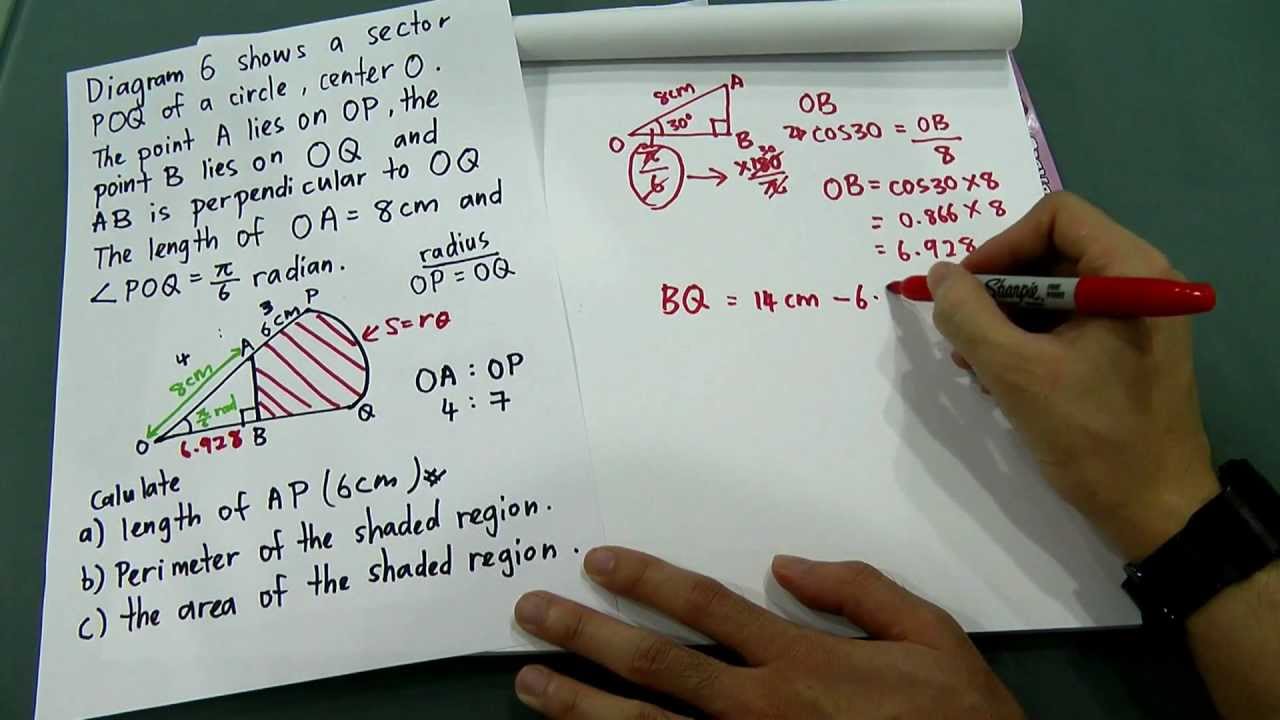 Diagram 6 shows a sector
POQ of a circle, center O.
The point A lies on OP, the
point B lies on OQ and
AB is perpendicular to OQ
The length of OA = 8cm and
∠POQ = π/6 radian.
radius
OP = OQ
P
3
6cm
S = rθ
4 :
A
8cm
π/6 rad
O
6.928
B
Q
OA : OP
4 : 7
Calulate
a) length of AP (6cm)
b) Perimeter of the shaded region.
c) the area of the shaded region.
8cm
A
30°
O
B
π/6
→ × 180/π
30
OB
cos30 = OB/8
OB = cos30 × 8
= 0.866 × 8
= 6.928
BQ = 14cm − 6.
Sharpie